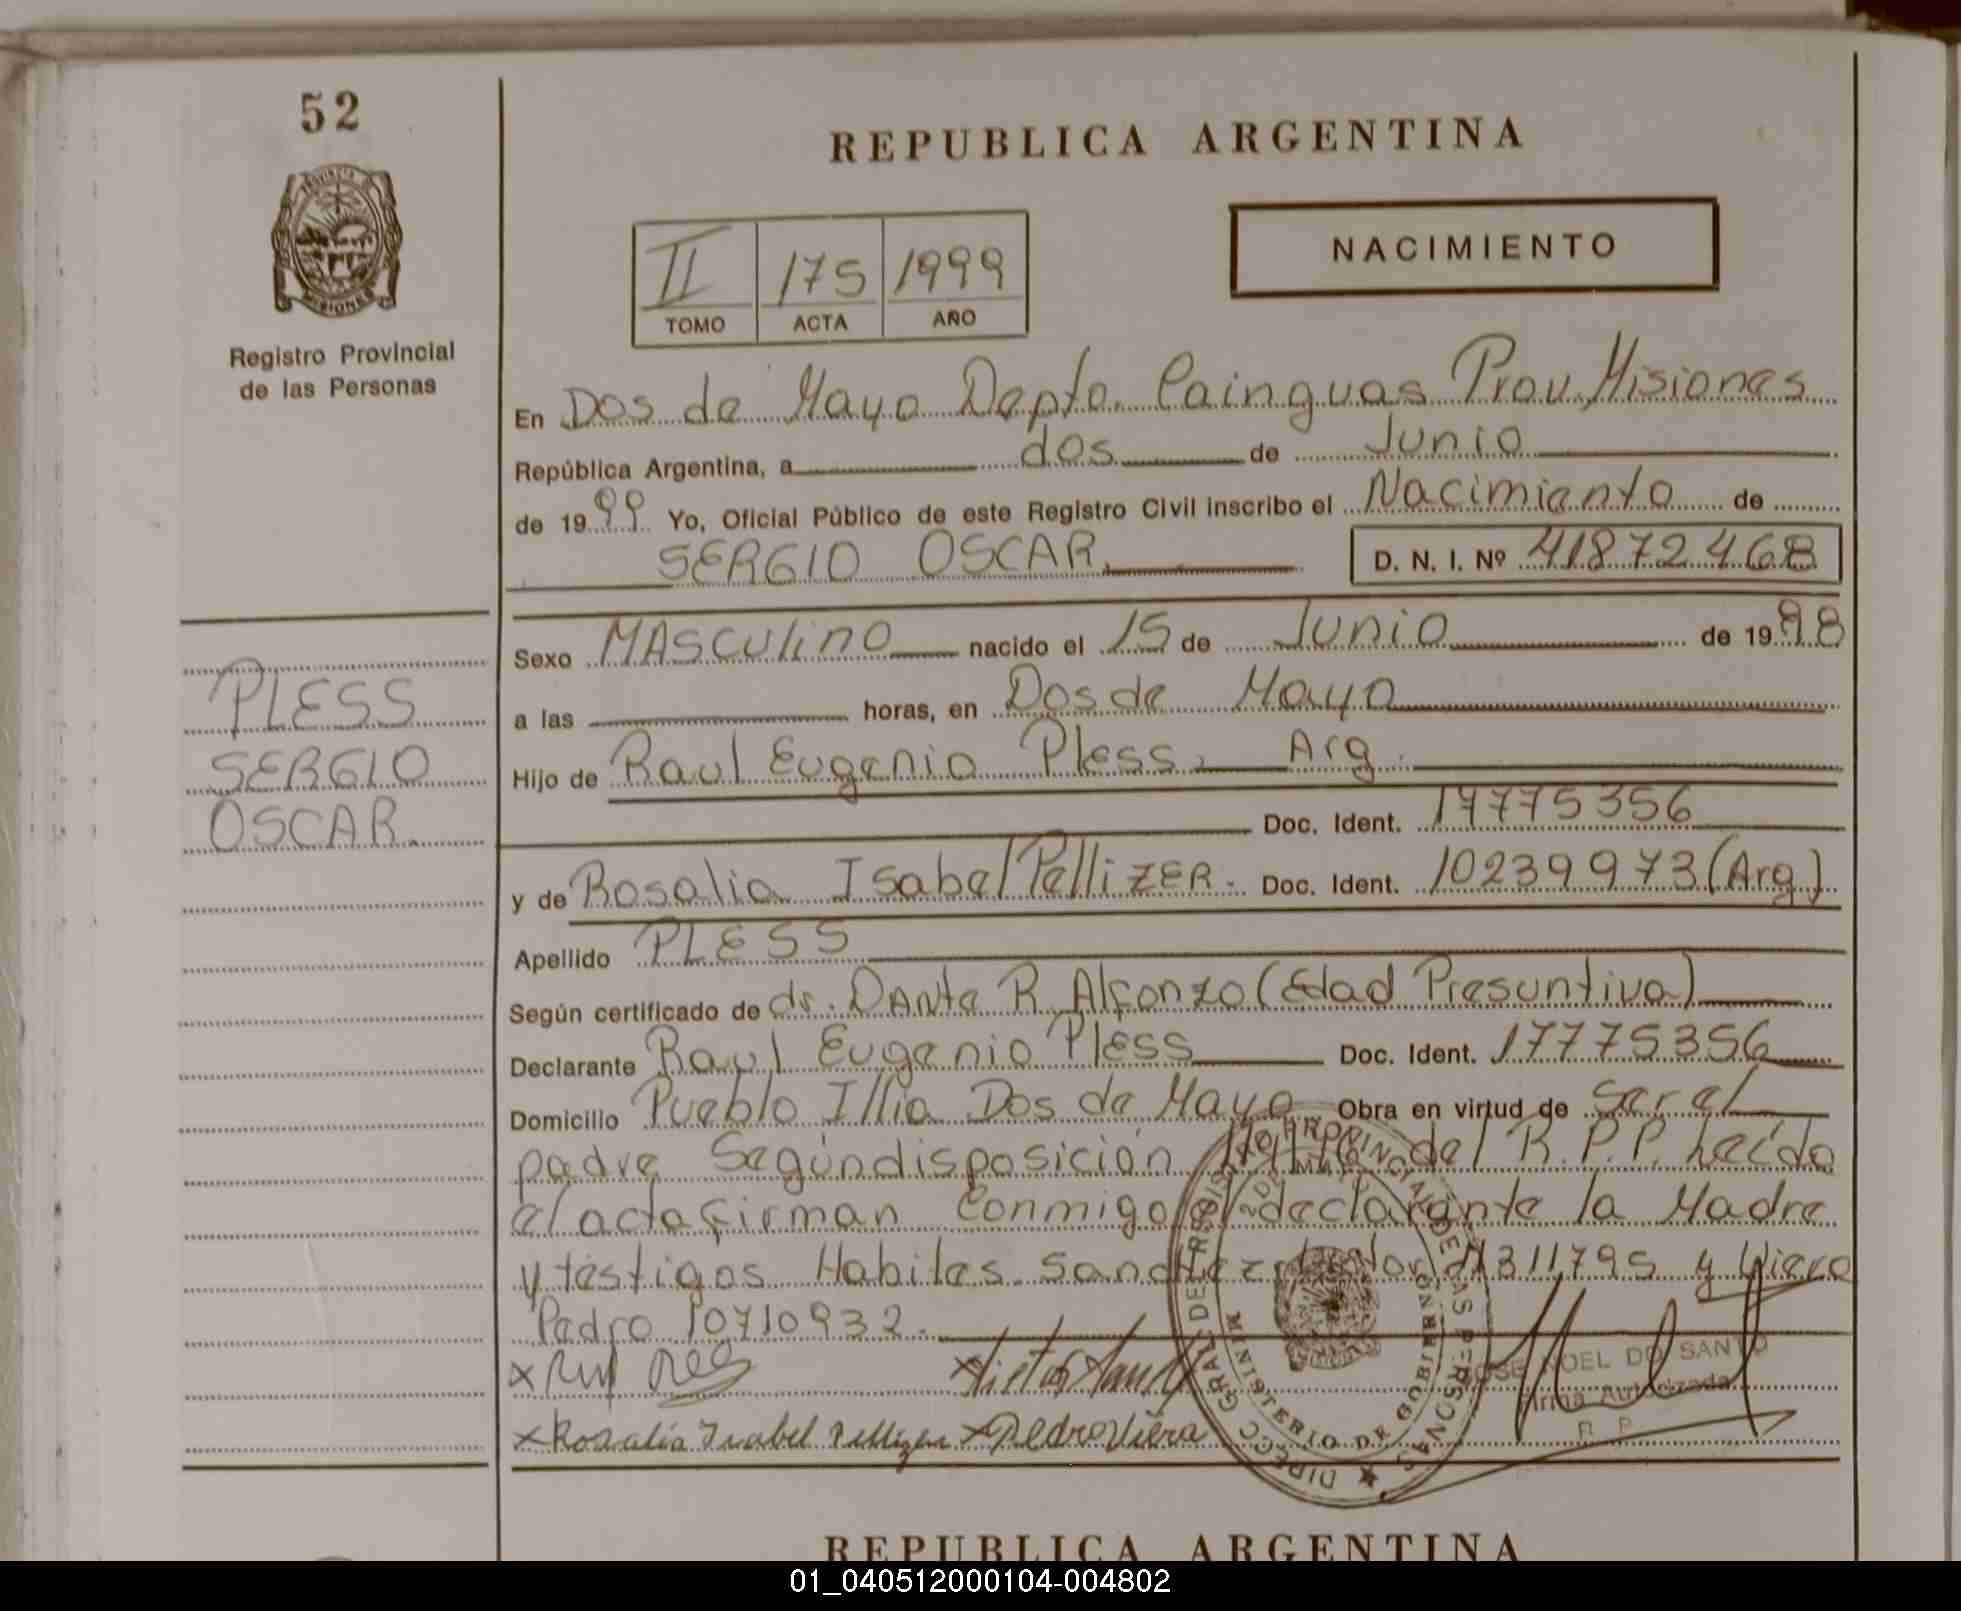 52
REPUBLICA ARGENTINA
PROVINCIA
MISIONES
Registro Provincial
de las Personas
II 175 1999
TOMO ACTA AÑO
NACIMIENTO
En Dos de Mayo Depto. Cainguas Prov. Misiones
República Argentina, a dos de Junio
de 1999 Yo, Oficial Público de este Registro Civil inscribo el Nacimiento de
SERGIO OSCAR D. N. I. Nº 41872468
PLESS
SERGIO
OSCAR.
Sexo MASCULINO nacido el 15 de Junio de 1998
a las horas, en Dos de Mayo
Hijo de Raul Eugenio Pless, Arg.
Doc. Ident. 17775356
y de Rosalia Isabel Pellizer. Doc. Ident. 10239973 (Arg)
Apellido PLESS
Según certificado de dr. Dante R. Alfonzo (Edad Presuntiva)
Declarante Raul Eugenio Pless Doc. Ident. 17775356
Domicilio Pueblo Illia Dos de Mayo Obra en virtud de ser el
padre Según disposición del R.P.P. Leída
el acta firman conmigo el declarante la Madre
y testigos Habiles Sanchez y Viera
Pedro 10710932.
x Victor
x Rosalia Isabel Pellizer x Pedro Viera
JOSE NOEL DO SANTO
Firma Autorizada
R P
DIRECC GRAL DE REGISTRO PROVINCIAL DE LAS PERSONAS
MINISTERIO DE GOBIERNO
REPUBLICA ARGENTINA
01_040512000104-004802